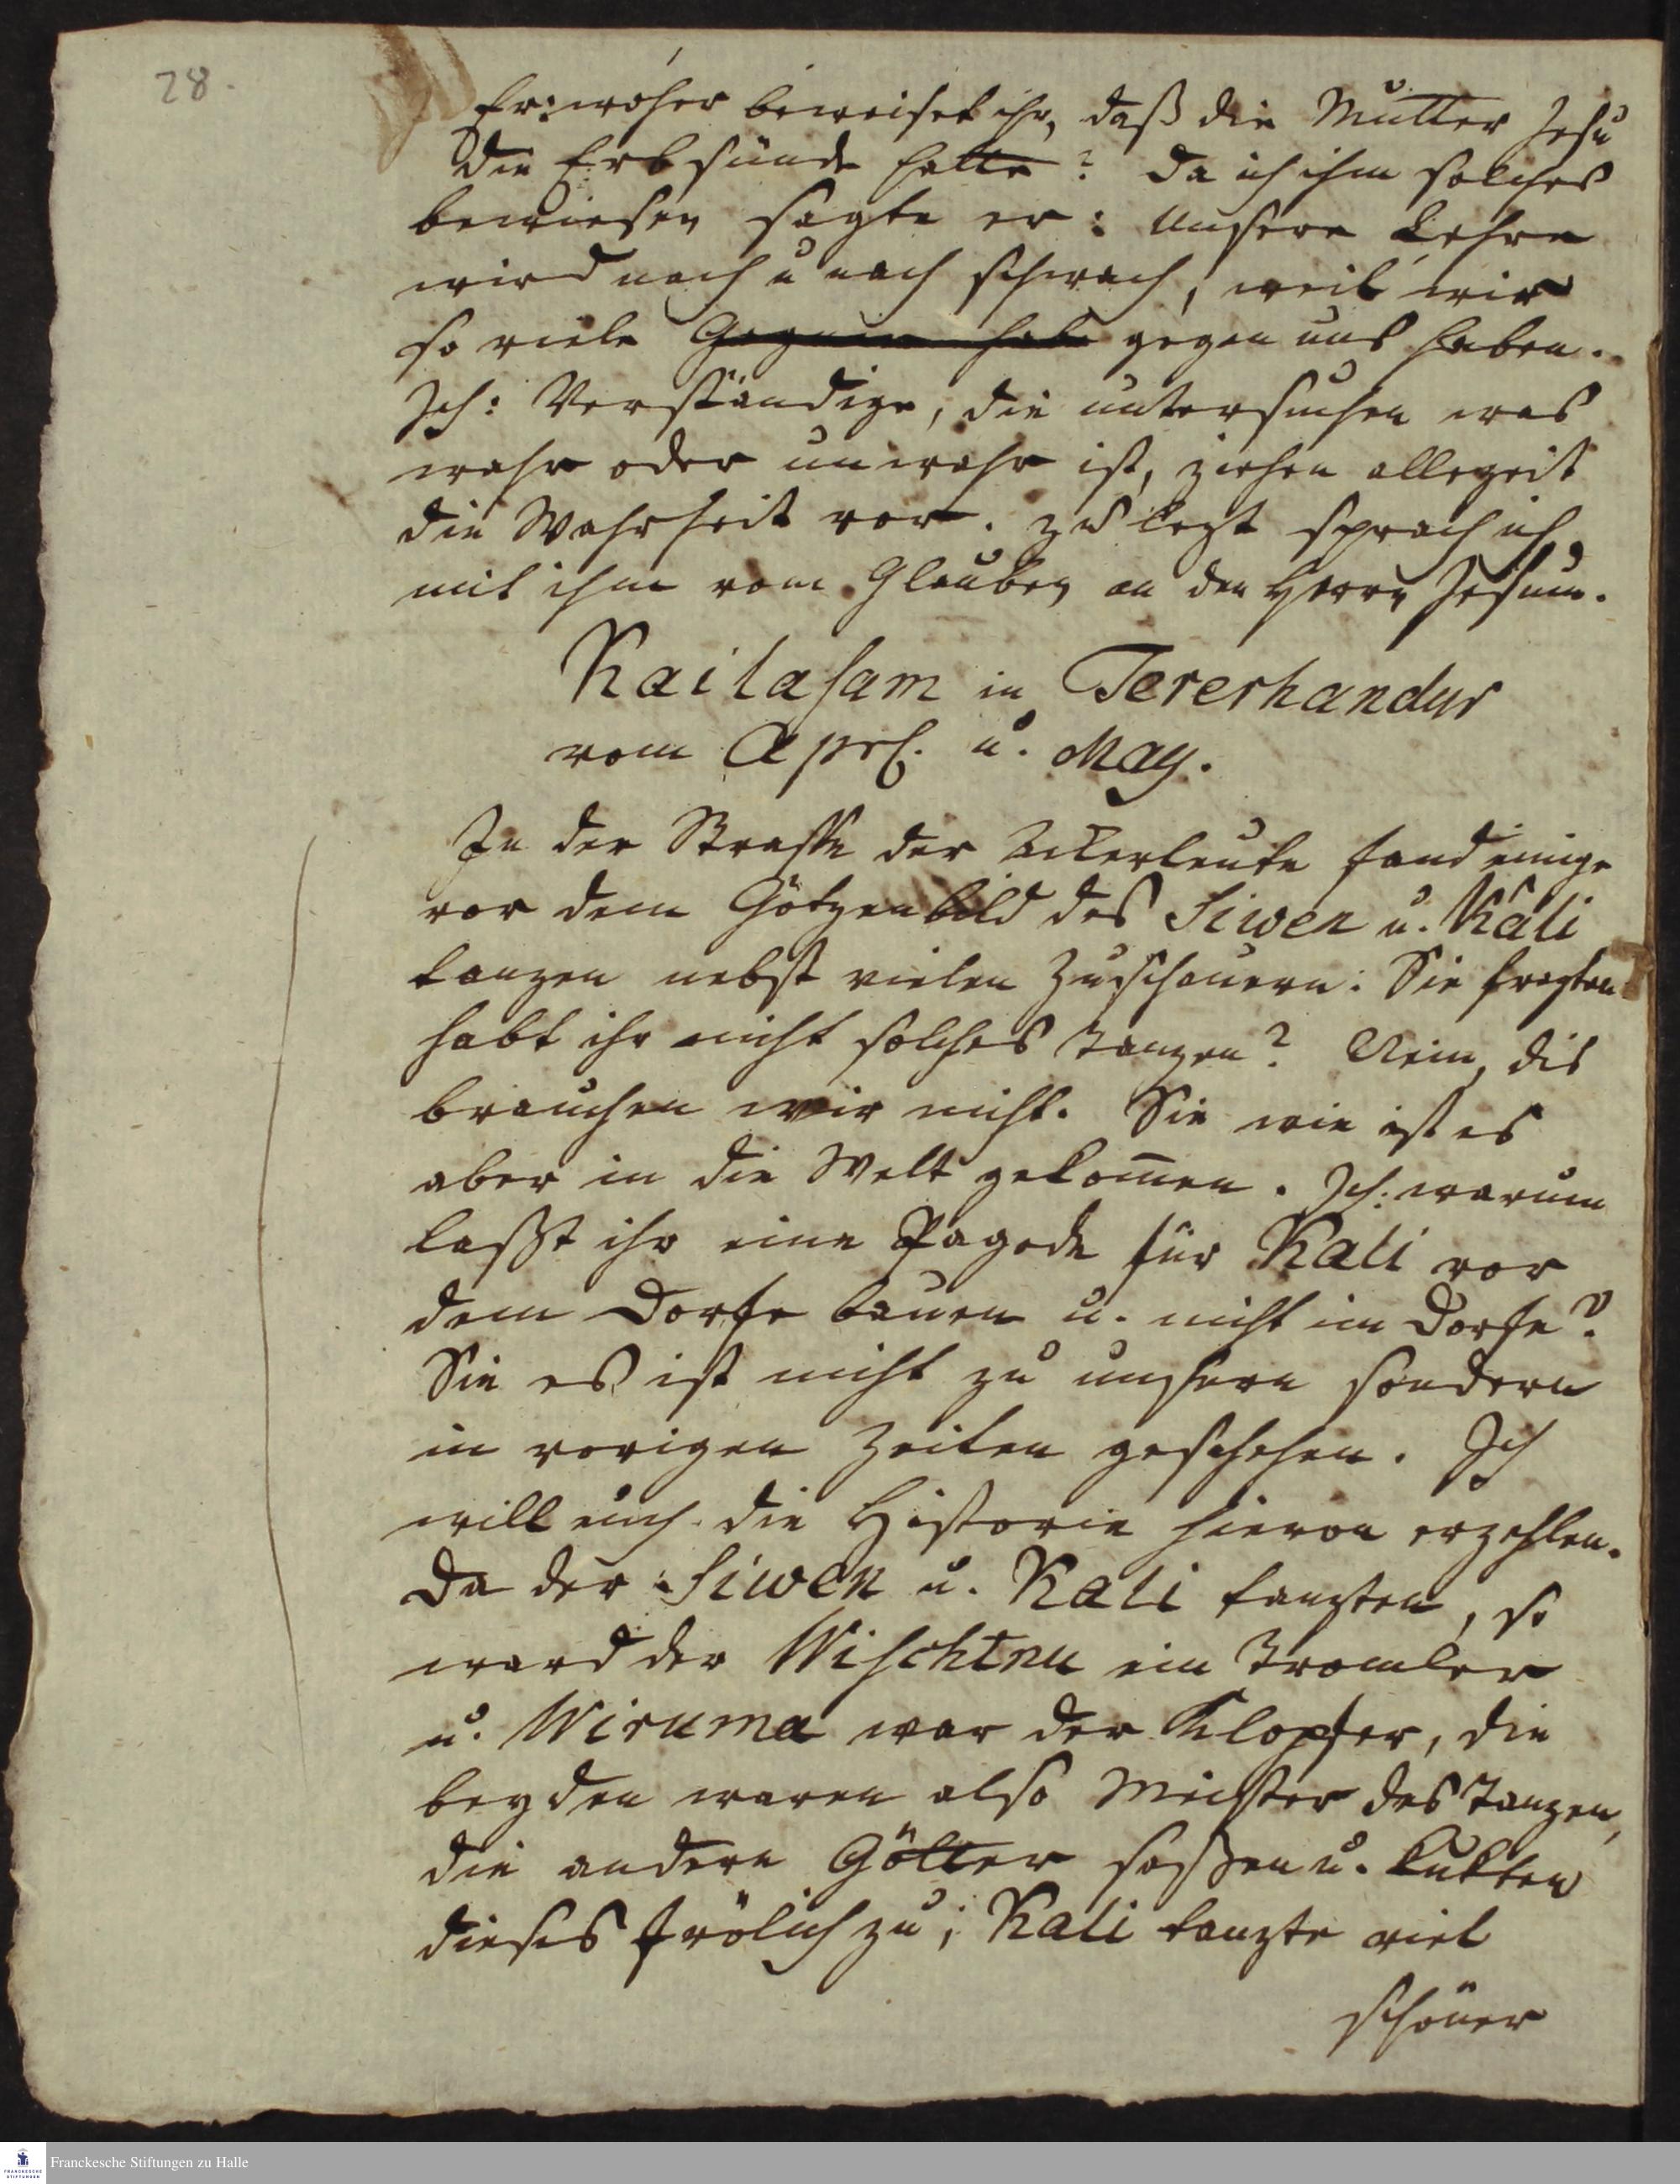 28.
Er: woher beweiset ihr, daß die Mutter Jesu
die Erbsünde hatte? Da ich ihm solches
bewiesen sagte er: Unsere Lehre
wird nach u nach schwach, weil wir
so viele Gegner hab gegen uns haben.
Ich: Verständige, die untersuchen was
wahr oder unwahr ist, ziehen allezeit
die Wahrheit vor. zu lezt sprach ich
mit ihm vom Glauben an den Herrn Jesum.
Kailasam in
vom Aprl. u. May.
In der Strasse der Ackerleute fand einige
vor dem Götzenbild des Siwen u. Kali
tanzen nebst vielen Zuschauern: Sie fragten
habt ihr nicht solches Tanzen? Nein, dis
brauchen wir nicht. Sie wie ist es
aber in die Welt gekom̅en. Ich: warum
laßt ihr eine Pagode für Kali vor
dem Dorfe bauen u. nicht im Dorfe?
Sie es ist nicht zu unsern sondern
in vorigen Zeiten geschehen. Ich
will euch die Historie hievon erzehlen.
Da der Siwen u. Kali tanzten, so
ward der Wischtnu ein Tromler
u. Wiruma war der Klopfer, die
beyden waren also Meister des Tanzen,
die andern Götter saßen u. kukten
dieses frölich zu; Kali tanzte viel
schöner
Franckesche Stiftungen zu Halle
FRANCKESCHE STIFTUNGEN